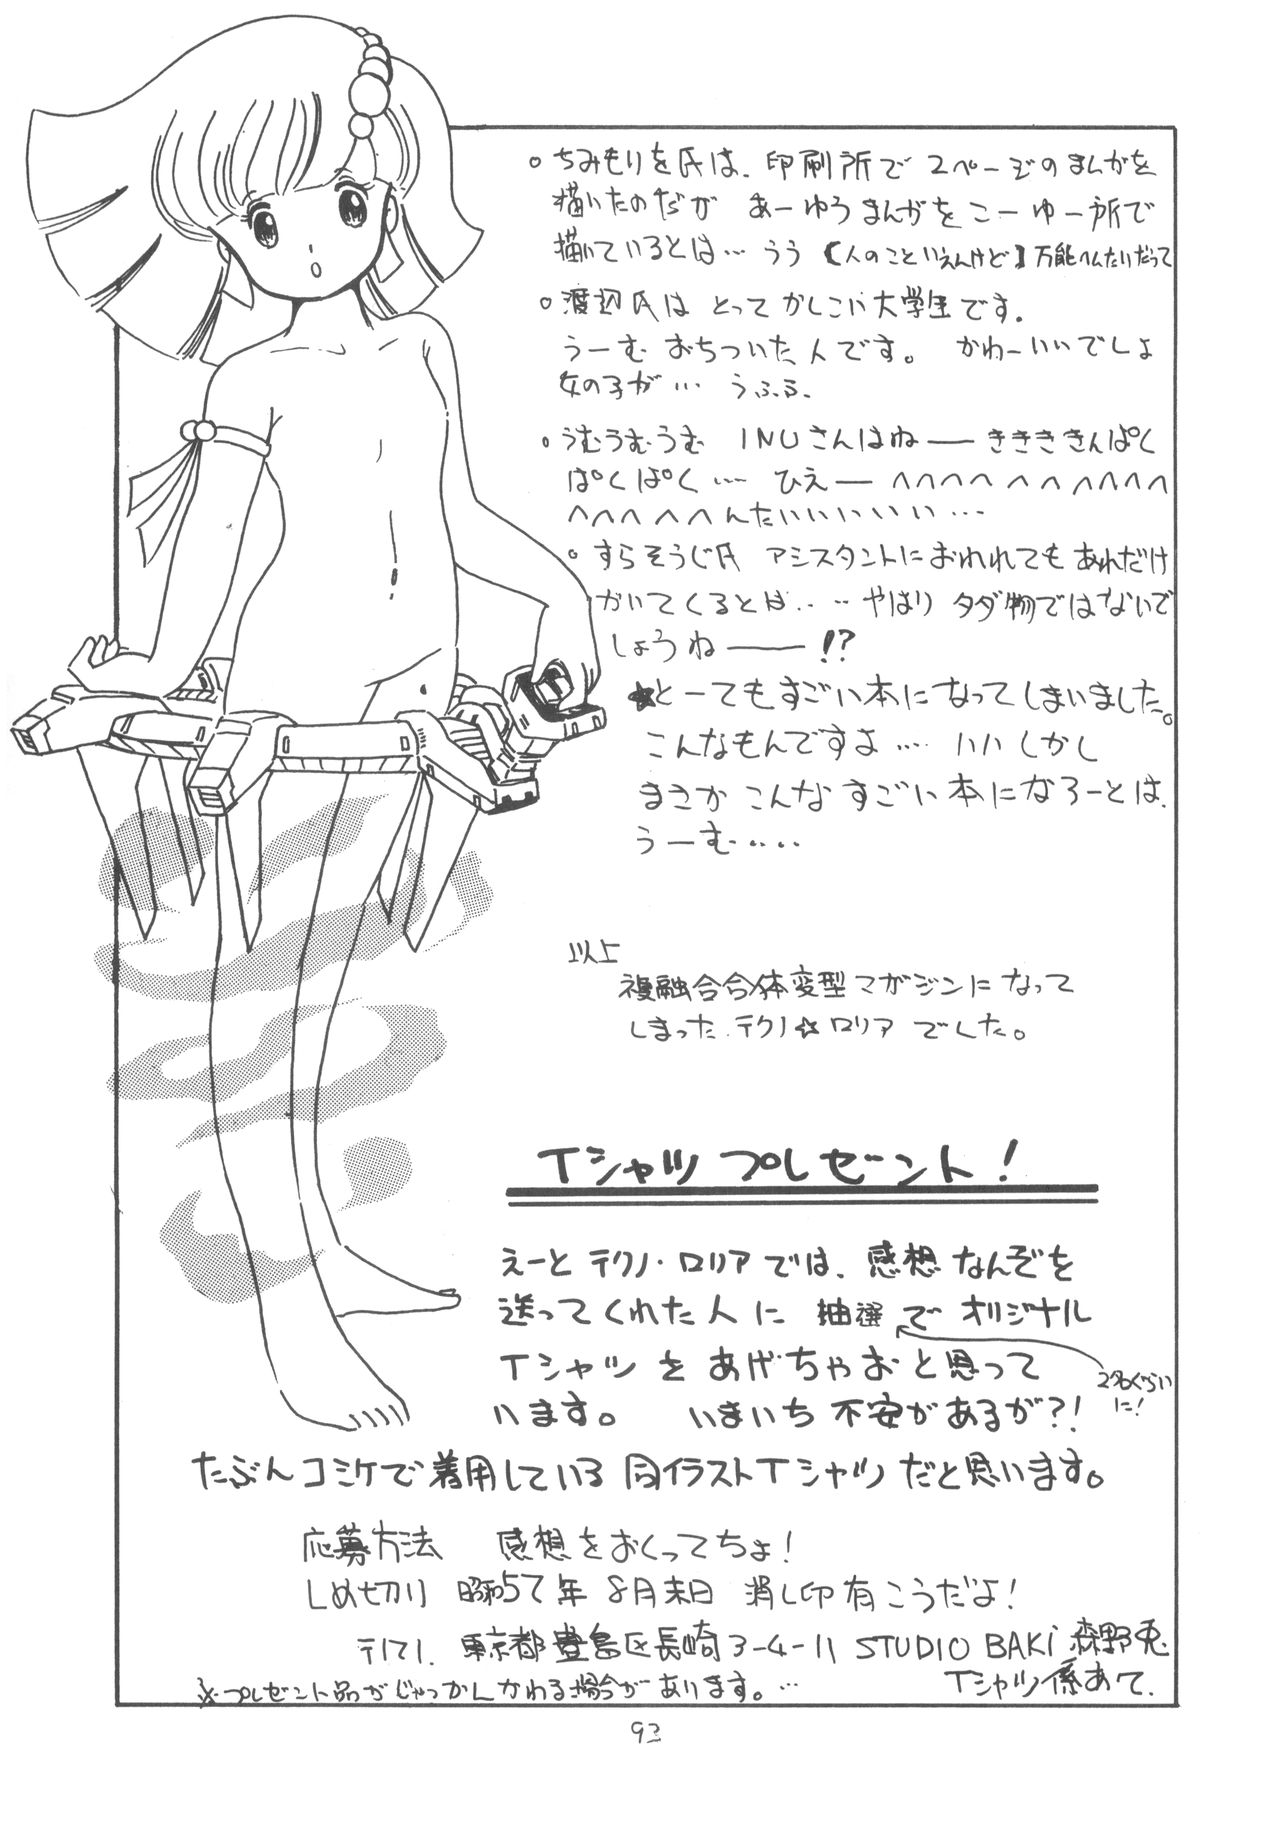 ちみもりを氏は、印刷所で2ページのまんがを
描いたのだが あーゆうまんがをこーゆー所で
描いているとは… うう【人のこといえんけど】万能へんたいだって
渡辺氏は とってかしこい大学生です。
うーむ おちついた人です。 かわーいいでしょ
女の子が… うふる。
うむうむうむ INUさんはね── きききききんぱく
ぱくぱく… ひえー ヘヘヘヘ ヘヘ ヘヘヘヘヘ
ヘヘヘ ヘヘ へんたいいいいいい…
すらそうじ氏 アシスタントにおわれてもあれだけ
かいてくるとは‥‥やはり タダ物ではないで
しょうね───!?
★とーてもすごい本になってしまいました。
こんなもんですよ…… ハハ しかし
まさか こんなすごい本になろーとは、
うーむ‥‥
以上
複融合合体変型マガジンになって
しまった、テクノ☆ロリア でした。
Tシャツ プレゼント!
えーと テクノ・ロリアでは、感想なんぞを
送ってくれた人に 抽選で オリジナル
Tシャツをあげちゃおと思って
2名ぐらい
に!
います。 いまいち不安があるが?!
たぶんコミケで着用している同イラストTシャツだと思います。
応募方法 感想をおくってちょ!
しめ切り 昭和57年 8月末日 消し印有こうだよ!
〒171. 東京都豊島区長崎3-4-11 STUDIO BAKi 森野兎
Tシャツ係あて.
※プレゼント品がじゃっかんかわる場合があります。…
93